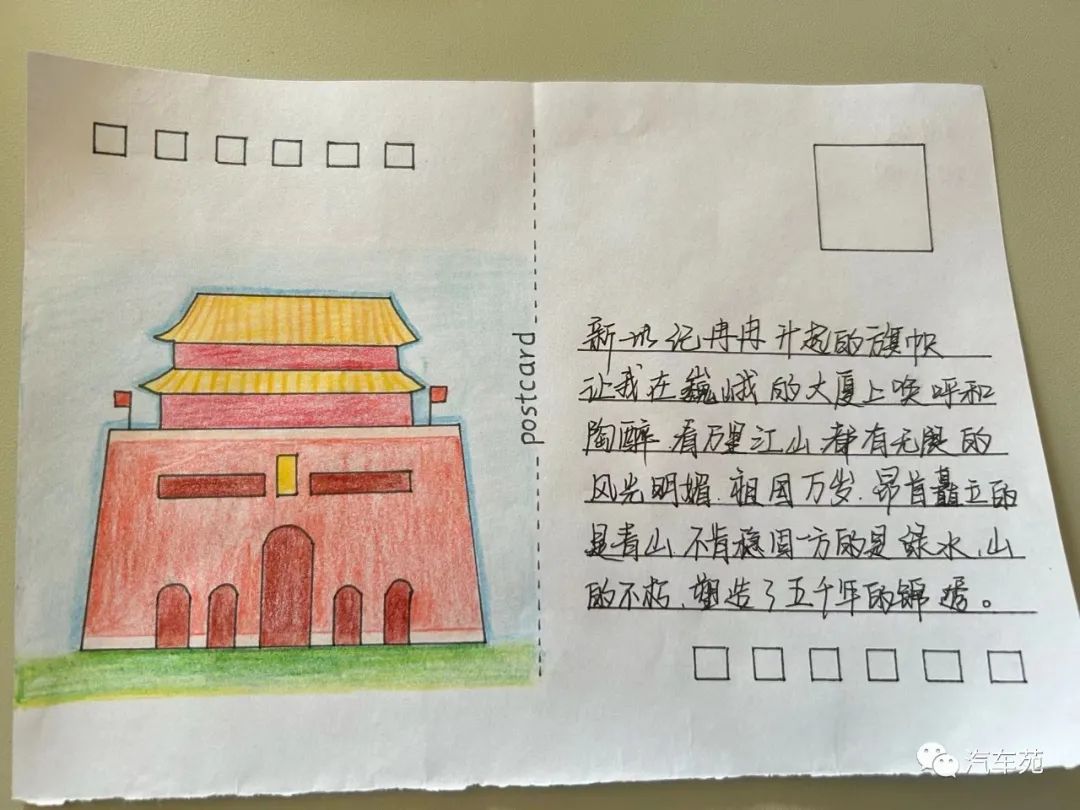 postcard
新世纪冉冉升起的旗帜
让我在巍峨的大厦上唤呼和
陶醉.看万里江山都有无限的
风光明媚.祖国万岁.昂首矗立的
是青山.不肯稳固一方的是绿水.山
的不朽.塑造了五千年的锦
汽车苑